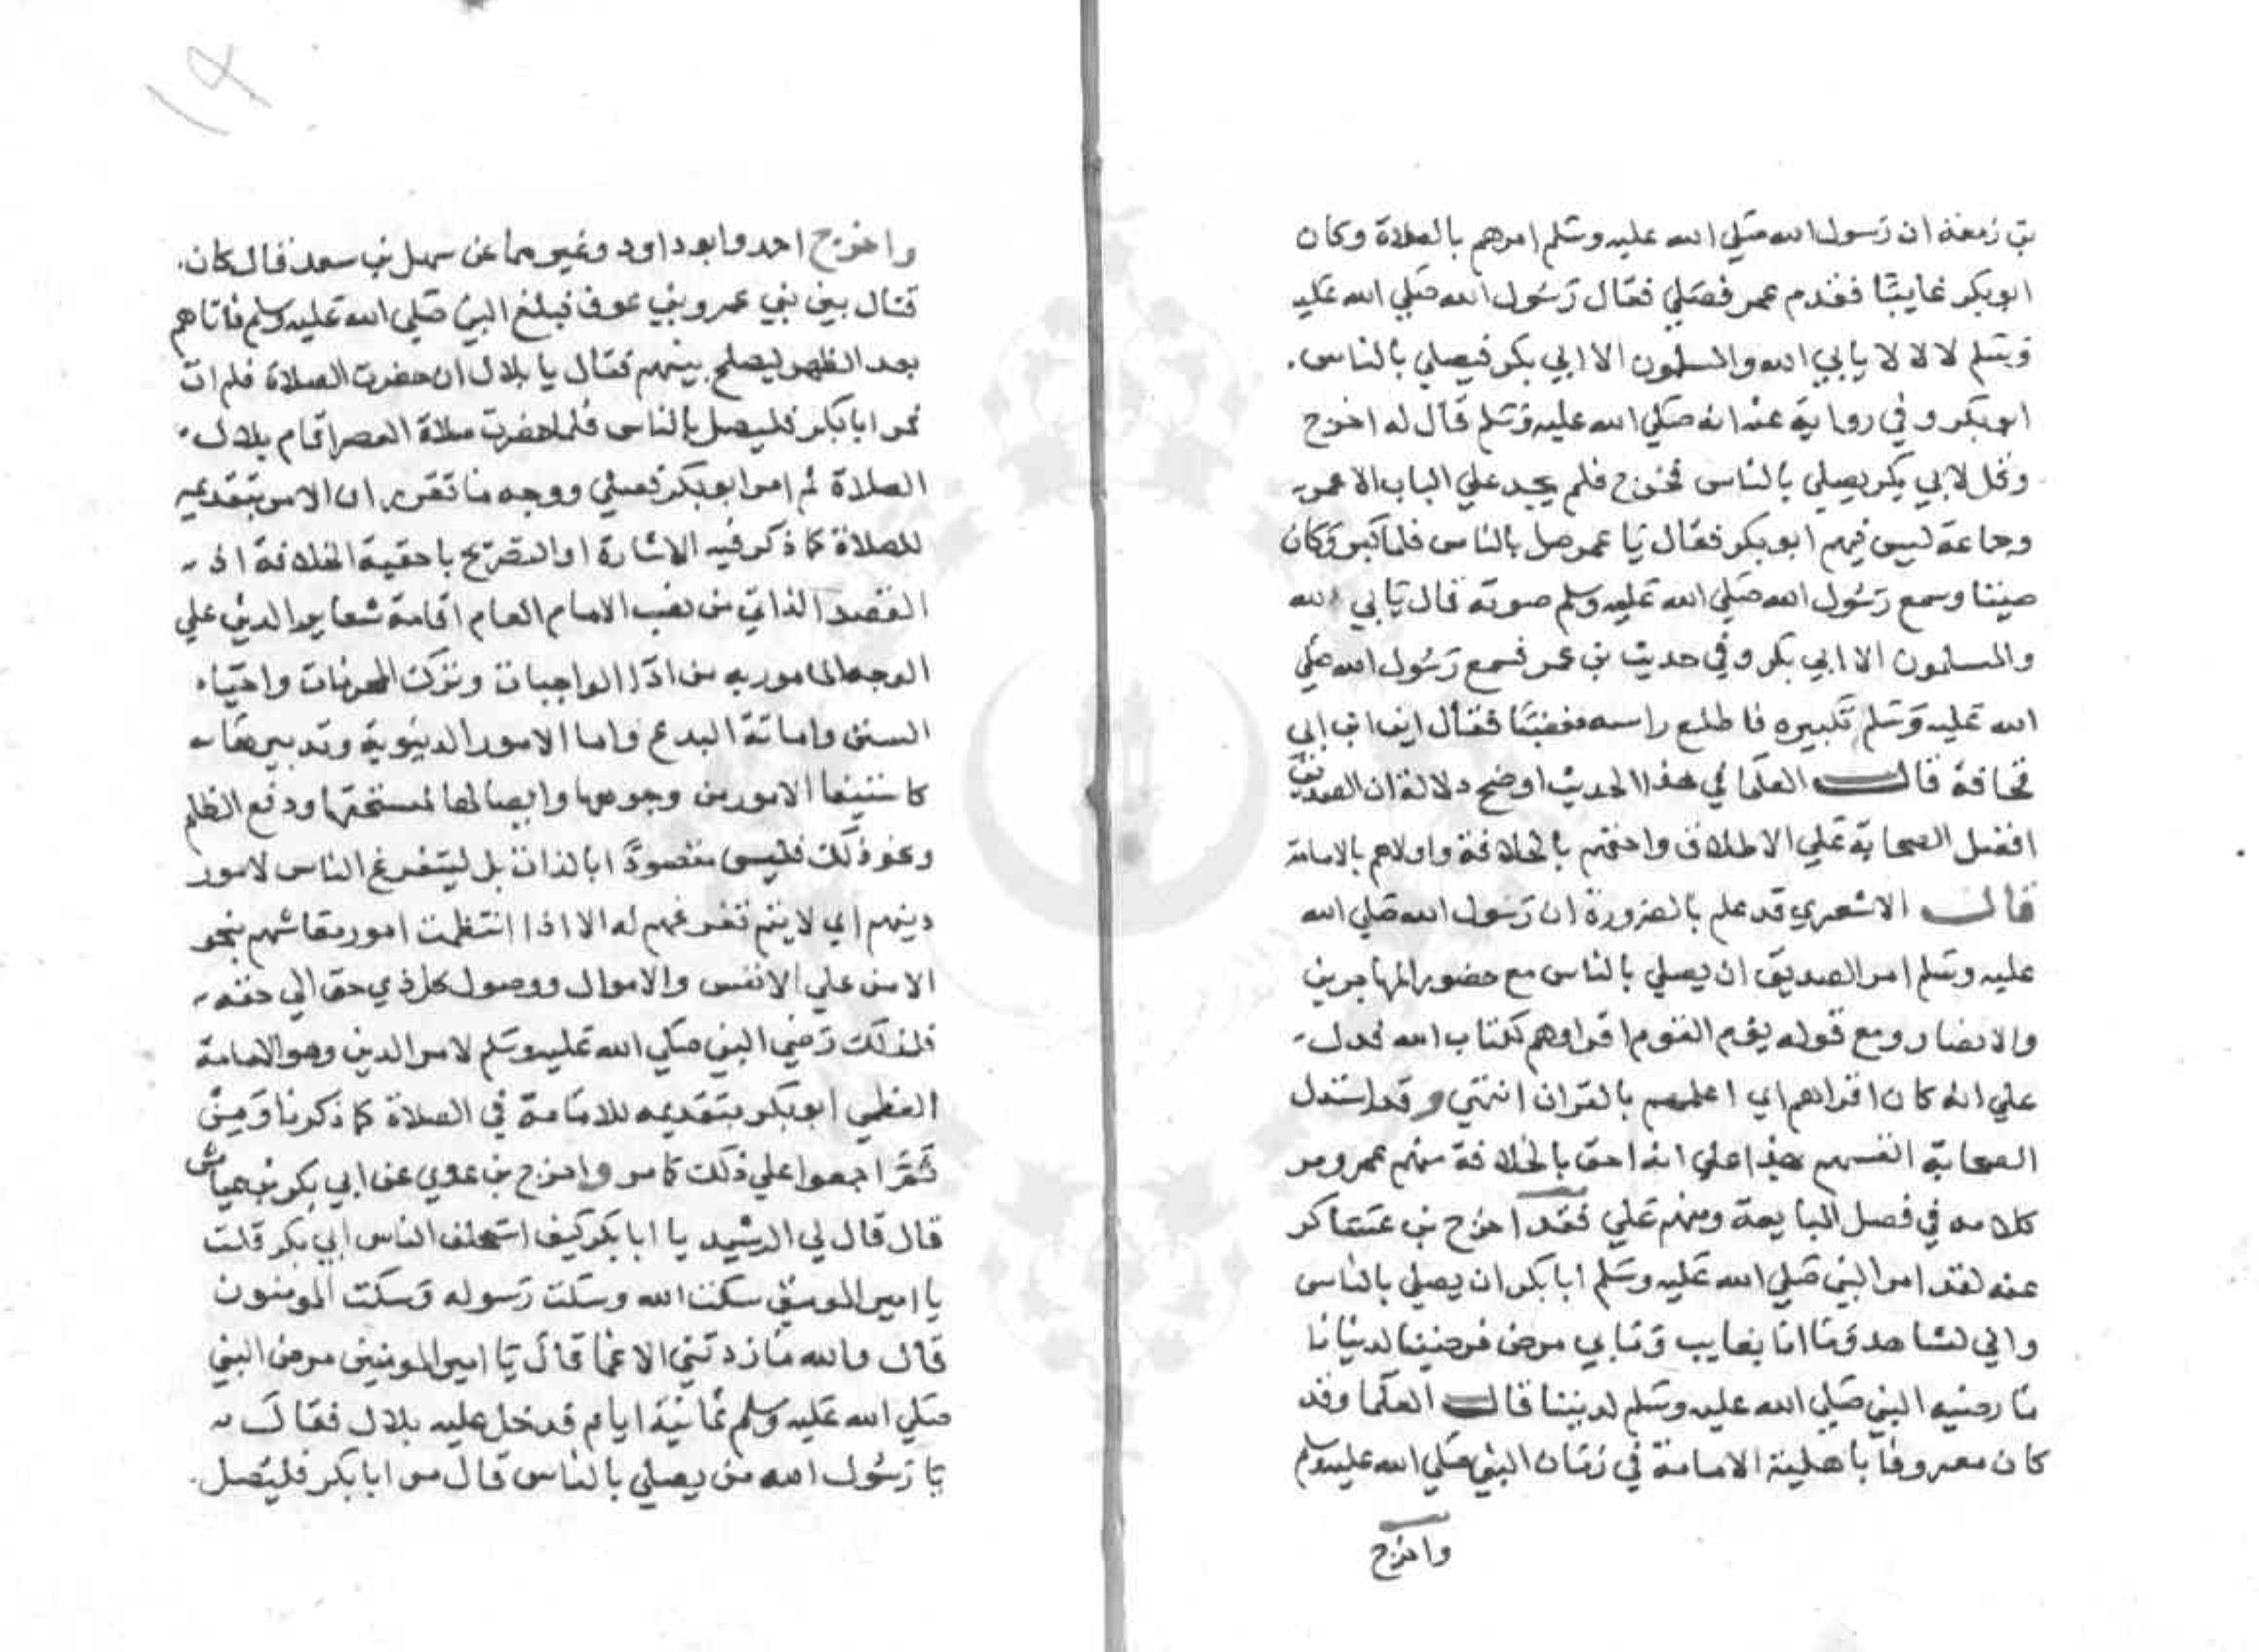 بن زمعة ان رسول الله صلي الله عليه وسلم امرهم بالصلاة وكان
ابو بكر غايبًا فقدم عمر فصلي فقال رسول الله صلي الله عليه
وسلم لا لا لا يابي الله والمسلمون الا ابي بكر فيصلي بالناس
ابو بكر وفي رواية عنه انه صلي الله عليه وسلم قال له اخرج
وقل لابي بكر يصلي بالناس فخرج فلم يجد علي الباب الا عمر
وجماعة ليس فيهم ابو بكر فقال يا عمر صل بالناس فلما كبر وكان
صيتا وسمع رسول الله صلي الله عليه وسلم صوته قال يابي الله
والمسلمون الا ابي بكر وفي حديث بن عمر فسمع رسول الله صلي
الله عليه وسلم تكبيره فاطلع راسه مغضبًا فقال اين ابن ابي
قحافة قال العلما في هذا الحديث اوضح دلالة ان الصديق
افضل الصحابة علي الاطلاق واحقهم بالخلافة واولاهم بالامامة
قال الاشعري قد علم بالضرورة ان رسول الله صلي الله
عليه وسلم امر الصديق ان يصلي بالناس مع حضور المهاجرين
والانصار ومع قوله يؤم القوم اقراوهم لكتاب الله فدل
علي انه كان اقراهم اي اعلمهم بالقران انتهي وقد استدل
الصحابة انفسهم بهذا علي انه احق بالخلافة منهم عمر ومر
كلامه في فصل المبايعة ومنهم علي فقد اخرج بن عساكر
عنه لقد امر النبي صلي الله عليه وسلم ابا بكر ان يصلي بالناس
واني لشاهد وما انا بغايب وما بي مرض فرضينا لدنيانا
ما رضيه النبي صلي الله عليه وسلم لديننا قال العلما وقد
كان معروفا باهلية الامامة في زمان النبي صلي الله عليه وسلم
واخرج
١٤
واخرج احمد وابو داود وغيرهما عن سهل بن سعد قال كان
قتال بين بني عمرو بني عوف فبلغ النبي صلي الله عليه وسلم فاتاهم
بعد الظهر ليصلح بينهم فقال يا بلال ان حضرت الصلاة فلم ات
فمر ابا بكر فليصل بالناس فلما حضرت صلاة العصر اقام بلال
الصلاة ثم امر ابو بكر فصلي ووجه ما تقرر ان الامر بتقديمه
للصلاة كما ذكر فيه الاشارة او التصريح باحقية الخلافة اذ
القصد الذاتي من نصب الامام العام اقامة شعاير الدين علي
الوجه المامور به من ادا الواجبات وترك المحرمات واحياء
السنن واماتة البدع واما الامور الدنيوية وتدبيرها
كاستيفا الامور من وجوهها وايصالها لمستحقها ودفع الظلم
ونحو ذلك فليس مقصودًا بالذات بل ليتفرغ الناس لامور
دينهم اي لا يتم تفرغهم له الا اذا انتظمت امور معاشهم بنحو
الامن علي الانفس والاموال ووصول كل ذي حق الي حقه
فلذلك رضي النبي صلي الله عليه وسلم لامر الدين وهو الامامة
العظمي ابو بكر بتقديمه للامامة في الصلاة كما ذكرنا ومن
ثمّ اجمعوا علي ذلك كما مر واخرج بن عدي عن ابي بكر بن عياش
قال قال لي الرشيد يا ابا بكر كيف استخلف الناس ابي بكر قلت
يا امير المومنين سكت الله وسكت رسوله وسكت المومنون
قال والله ما زدتني الا غما قال يا امير المومنين مرض النبي
صلي الله عليه وسلم ثمانية ايام فدخل عليه بلال فقال
يا رسول الله من يصلي بالناس قال مر ابا بكر فليصل